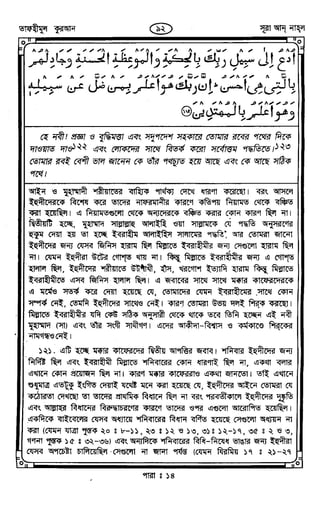 তাফহীমুল কুরআন
৯২
সূরা আন নাহল
ادْعُ إِلَى سَبِيلِ رَبِّكَ بِالْحِكْمَةِ وَالْمَوْعِظَةِ الْحَسَنَةِ وَجَادِلْهُمْ
بِالَّتِي هِيَ أَحْسَنُ إِنَّ رَبَّكَ هُوَ أَعْلَمُ بِمَنْ ضَلَّ عَنْ سَبِيلِهِ
وَهُوَ أَعْلَمُ بِالْمُهْتَدِينَ
হে নবী! প্রজ্ঞা ও বুদ্ধিমত্তা এবং সদুপদেশ সহকারে তোমার রবের পথের দিকে
দাওয়াত দাও১২২ এবং লোকদের সাথে বিতর্ক করো সর্বোত্তম পদ্ধতিতে।১২৩
তোমার রবই বেশী ভাল জানেন কে তাঁর পথচ্যুত হয়ে আছে এবং কে আছে সঠিক
পথে।
আইন ও মুহাম্মাদী শরীয়াতের বাহ্যিক পার্থক্য দেখে ধারণা করেছো। বরং আসলে
ইহুদীদেরকে বিশেষ করে তাদের নাফরমানীর কারণে কতিপয় নিয়ামত থেকে বঞ্চিত
করা হয়েছিল। এ নিয়ামতগুলো থেকে অন্যদেরকে বঞ্চিত করার কোন কারণ ছিল না।
দ্বিতীয়টি হচ্ছে, মুহাম্মাদ সাল্লাল্লাহু আলাইহি ওয়া সাল্লামকে যে পদ্ধতি অনুসরণের
হুকুম দেয়া হয় তা হচ্ছে ইবরাহীম আলাইহিস সালামের পদ্ধতি, আর তোমরা জানো
ইহুদীদের জন্য যেসব জিনিস হারাম ছিল মিল্লাতে ইবরাহীমীর জন্য সেগুলো হারাম ছিল
না। যেমন ইহুদীরা উটের গোশত খায় না। কিন্তু মিল্লাতে ইবরাহীমীর জন্য এ গোশত
হালাল ছিল, ইহুদীদের শরীয়াতে উটপাখী, হাঁস, খরগোশ ইত্যাদি হারাম কিন্তু মিল্লাতে
ইবরাহীমীতে এসব জিনিস হালাল ছিল। এ জবাবের সাথে সাথে মক্কার কাফেরদেরকে
এ মর্মেও সতর্ক করে দেয়া হয়েছে যে, তোমাদের যেমন ইবরাহীমের সাথে কোন
সম্পর্ক নেই, তেমনি ইহুদীদের সাথেও নেই। কারণ তোমরা উভয় দলই শির্ক করছো।
মিল্লাতে ইবরাহীমীর যদি কেউ সঠিক অনুসারী থেকে থাকে তবে তিনি হচ্ছেন এই নবী
মুহাম্মাদ (সা) এবং তাঁর সংগী সাথীগণ। এদের আকীদা-বিশ্বাস ও কর্মকাণ্ডে শিরকের
নামগন্ধও নেই।
১২১. এটি হচ্ছে মক্কার কাফেরদের দ্বিতীয় আপত্তির জবাব। শনিবার ইহুদীদের জন্য
নির্দিষ্ট ছিল এবং ইবরাহীমী মিল্লাতে শনিবারের কোন ধারণাই ছিল না, একথা বলার
এখানে কোন প্রয়োজন ছিল না। কারণ মক্কার কাফেররাও একথা জানতো। তাই এখানে
শুধুমাত্র এতটুকু ইংগিত দেয়াই যথেষ্ট মনে করা হয়েছে যে, ইহুদীদের আইনে তোমরা যে
কঠোরতা দেখছো তা তাদের প্রাথমিক বিধানে ছিল না বরং পরবর্তীকালে ইহুদীদের দুষ্কৃতি
এবং আল্লাহর বিধানের বিরুদ্ধাচরণের কারণে তাদের ওপর এগুলো আরোপিত হয়েছিল।
একদিকে বাইবেলের যেসব অধ্যায়ে শনিবারের বিধান বর্ণিত হয়েছে সেগুলো অধ্যয়ন না
করা (যেমন যাত্রা পুস্তক ২০ ঃ ৮-১১, ২৩ ঃ ১২ ও ১৩, ৩১ঃ ১২-১৭, ৩৫ ঃ ২ ও ৩,
গণনা পুস্তক ১৫ ঃ ৩২-৩৬) এবং অন্যদিকে শনিবারের বিধি-নিষেধ ভাঙার জন্য ইহুদীরা
যেসব অপচেষ্টা চালিয়েছিল-সেগুলো না জানা পর্যন্ত (যেমন যিরমিয় ১৭ ঃ ২১-২৭
পারা ঃ ১৪